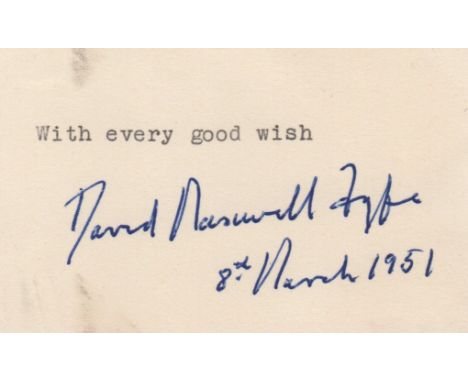 With every good wish
David Maxwell Fyfe
8th March 1951